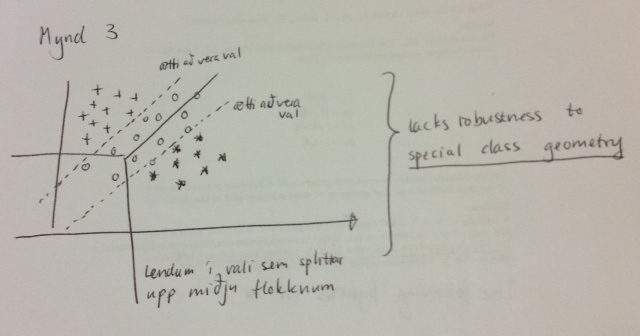 Mynd 3
ætti að vera val
ætti að vera
val
lacks robustness to
special class geometry
Lendum í vali sem splittar
upp miðju flokknum